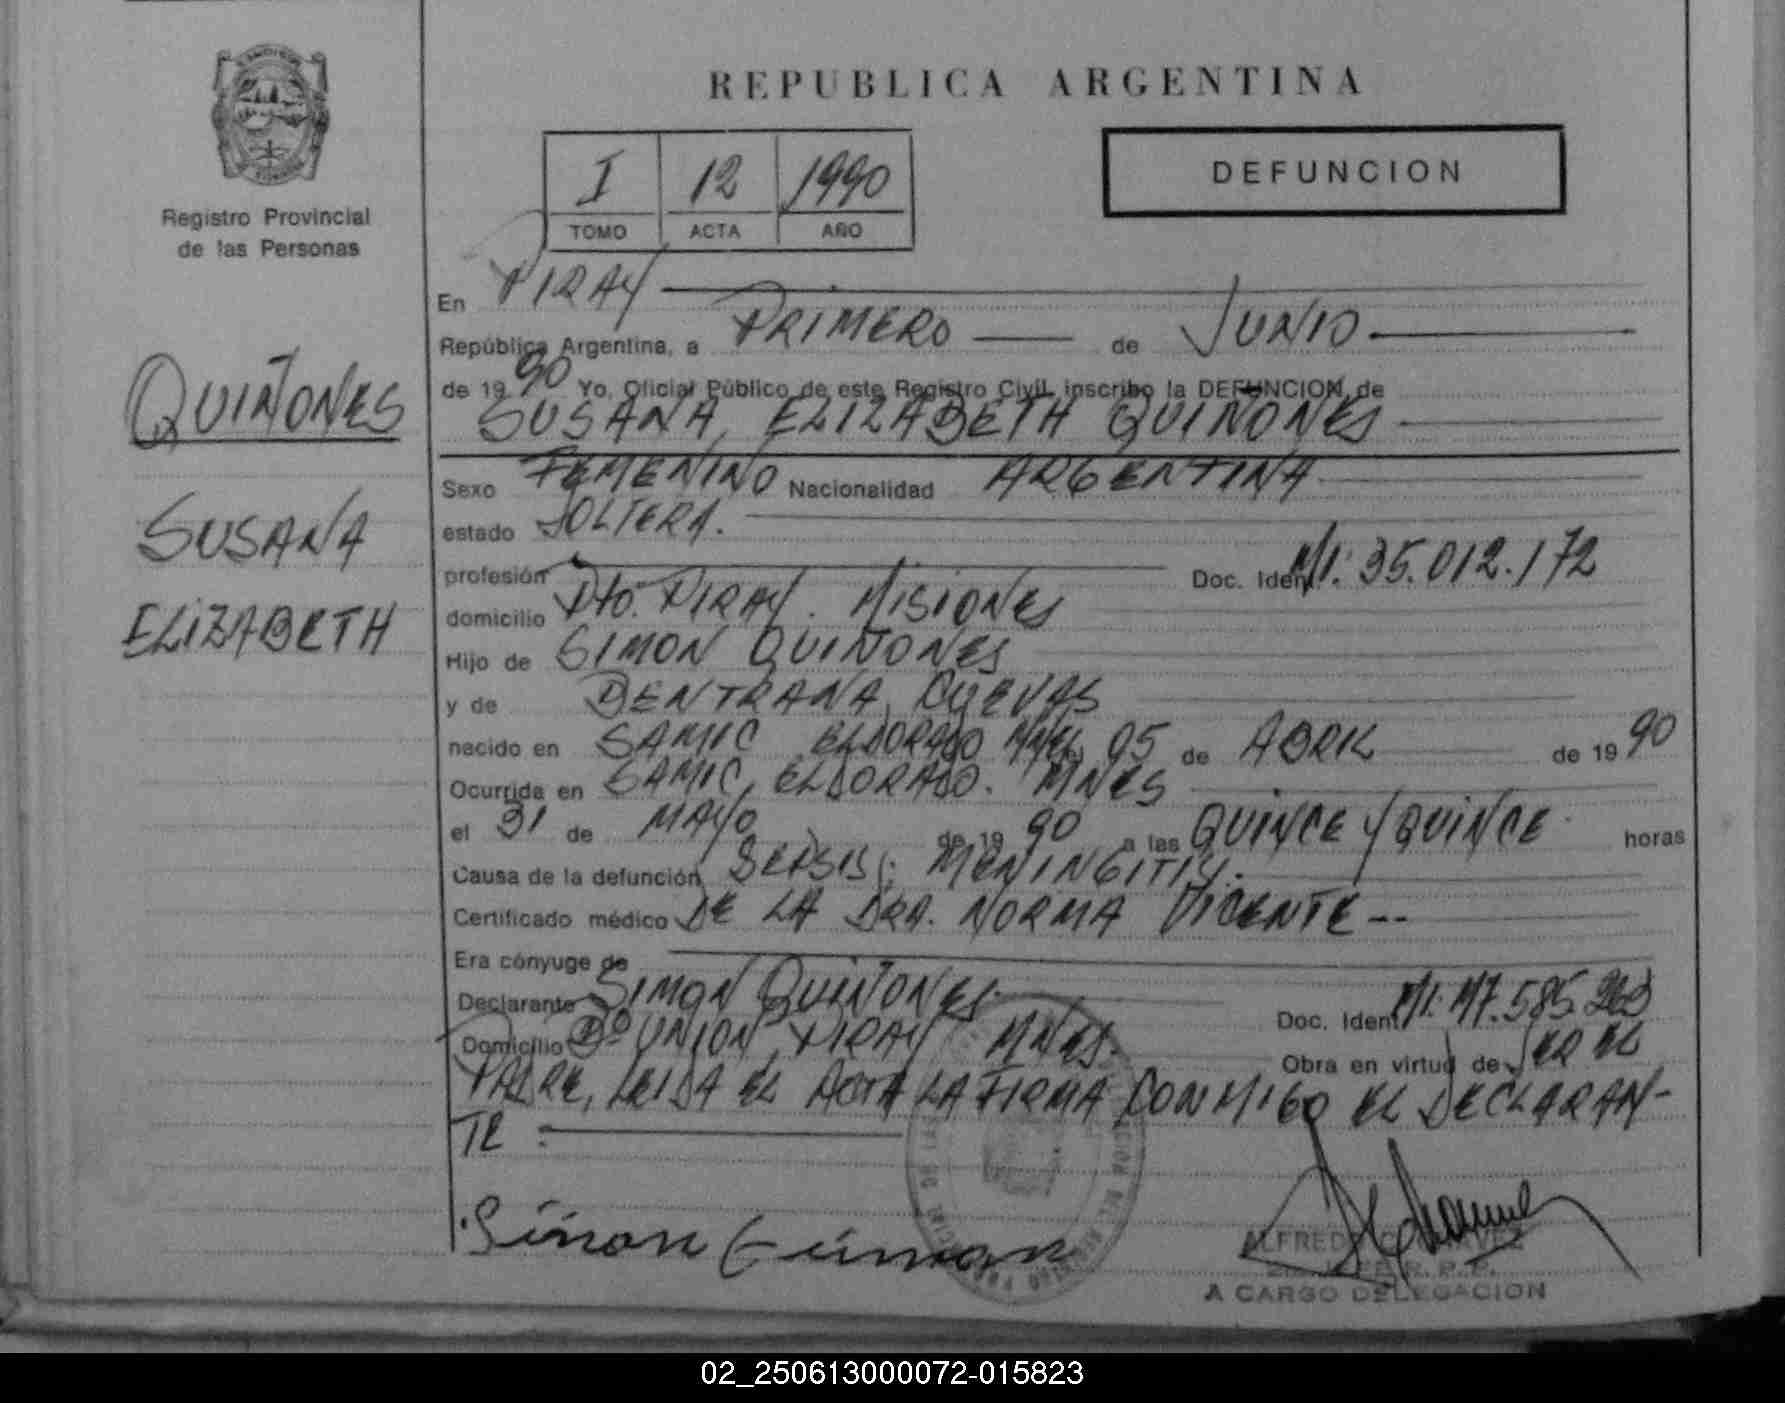 REPUBLICA ARGENTINA
DEFUNCION
I 12 1990
TOMO ACTA AÑO
Registro Provincial
de las Personas
QUIÑONES
SUSANA
ELIZABETH
En PIRAY
República Argentina, a PRIMERO de JUNIO
de 19 90 Yo, Oficial Público de este Registro Civil, inscribo la DEFUNCION, de
SUSANA ELIZABETH QUIÑONES
Sexo FEMENINO Nacionalidad ARGENTINA
estado SOLTERA.
profesión Doc. Ident. M/I: 35.012.172
domicilio Pto. PIRAY. MISIONES
Hijo de SIMON QUIÑONES
y de BENTRANA, CUEVAS
nacido en SAMIC ELDORADO Mnes, 05 de ABRIL de 19 90
Ocurrida en SAMIC, ELDORADO. MNES
el 31 de MAYO de 19 90 a las QUINCE Y QUINCE horas
Causa de la defunción SEPSIS; MENINGITIS.
Certificado médico DE LA DRA. NORMA VICENTE --
Era cónyuge de
Declarante SIMON QUIÑONES Doc. Ident. M/I: M7.585.
Domicilio Bº UNION, PIRAY MNES. Obra en virtud de SER EL
PADRE, LEIDA EL ACTA LA FIRMA CONMIGO EL DECLARAN-
TE.
Simon
ALFREDO CHAVEZ
R.P.P.
A CARGO DELEGACION
02_250613000072-015823